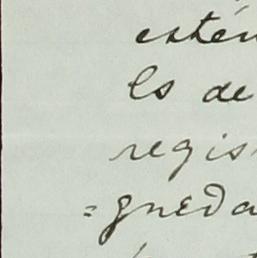 estén
Es de
regis
=gueda